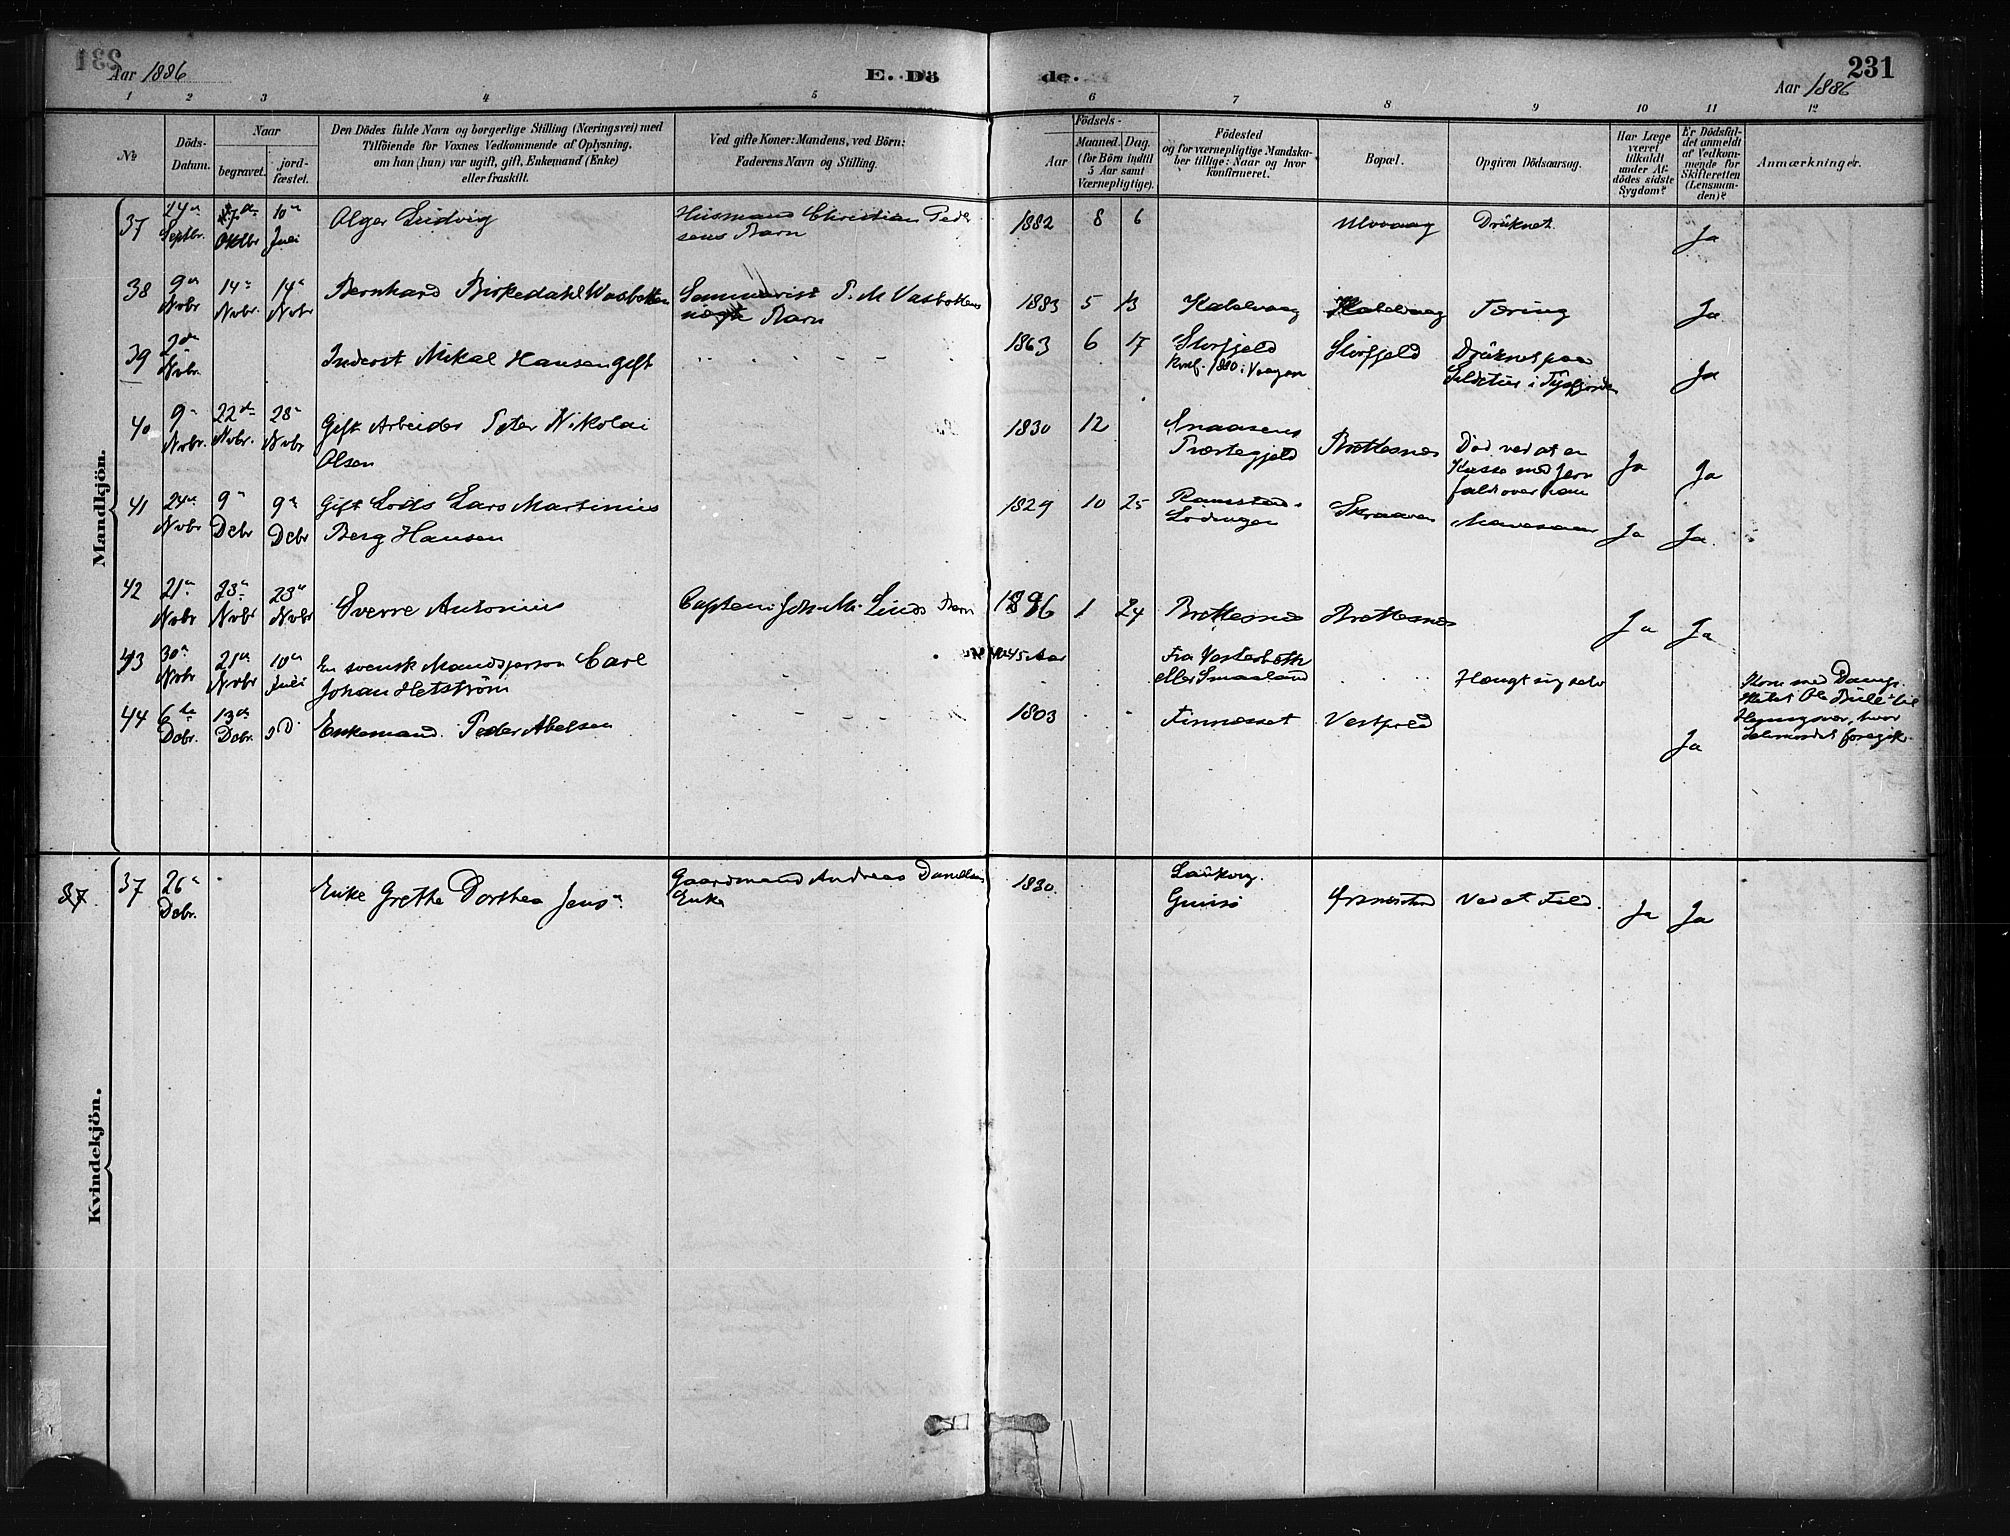 Aar 1886
E. Dö
de.
231
Aar 1886
1 2 3 4 5 6 7 8 9 10 11 12
No
Döds-
Datum.
Naar
begravet.
jord-
fæstet.
Den Dödes fulde Navn og borgerlige Stilling (Næringsvei) med
Tilföiende for Voxnes Vedkommende af Oplysning,
om han (hun) var ugift, gift, Enkemand (Enke)
eller fraskilt.
Ved gifte Koner: Mandens, ved Börn:
Faderens Navn og Stilling.
Födsels-
Aar
Maaned.
Dag.
(for Börn indtil
5 Aar samt
Værnepligtige).
Födested
og for værnepligtige Mandska-
ber tillige: Naar og hvor
konfirmeret.
Bopæl.
Opgiven Dödsaarsag.
Har Læge
været
tilkaldt
under Af-
dödes sidste
Sygdom?
Er Dödsfal-
det anmeldt
af Vedkom-
mende for
Skifteretten
(Lensman-
den)?
Anmærkninger.
Mandkjön.
37 24de Septbr. Oktbr 10de Juli Olger Ludvig Husmand Christian Peder
sens Barn 1882 8 6 Ulvvaag Druknet Ja
38 9de Nvbr 14de Nvbr. 14de Nvbr Bernhard Birkedahl Vasbotten P. M. Vasbottens
Barn 1883 5 13 Kabelvaag Kabelvaag Tæring Ja
39 2den Nvbr. Inderst Mikal Hansen gift 1863 6 17 Storfjeld
Konf. 1880 i Vaagan Storfjeld Druknet paa
i Tysfjorden Ja
40 9de Nvbr. 22de Nvbr. 28de Nvbr Gift Arbeider Peter Nikolai
Olsen 1830 12 Snaasens
Præstegjeld Brettesnes Död ved at en
Kasse med Jern
faldt over ham Ja Ja
41 24de Nvbr 9de Dcbr 9de Dcbr Gift Lods Lars Martinius
Berg Hansen 1829 10 25
Lödingen Skraaven Mavesaar Ja Ja
42 21de Nvbr 23de Nvbr 23de Nvbr Sverre Antonius Captein Joh. M. Linds Barn 1886 1 24 Brettesnes Brettesnes Ja Ja
43 30de Nvbr 21de Nvbr 10de Juli En svensk Mandsperson Carl
Johan Hetström 45 Aar Fra Vesterbotn
eller Smaaland Hængt sig selv Kom med Damp-
skibet Ole Bull til
Henningsvær, hvor
Selvmordet foregik.
44 6te Dcbr. 13de Dcbr. Do Enkemand Peder Abelsen 1803 Finnesset Vestfjeld Ja
Kvindekjön.
37 37 26de Dcbr. Enke Grethe Dorthea Jens Gaardmand Andreas Danielsens
Enke 1830 Laukvig
Gimsö Ved et Fald. Ja Ja